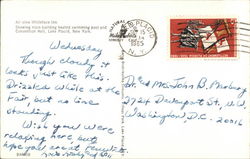 An view Whiteface Inn
Showing main building heated swimming pool and
Convention Hall, Lake Placid, New York.
Wednesday
Though cloudy it
looks just like this.
Drizzled while at the
Fair, but no line
standing.
Wish you were
relaxing here but
hope you are at
LAKE PLACID
N.Y.
1965
Dr. and Mrs John B.
3724 Davenport St., N.W.
Washington, D.C.
20016